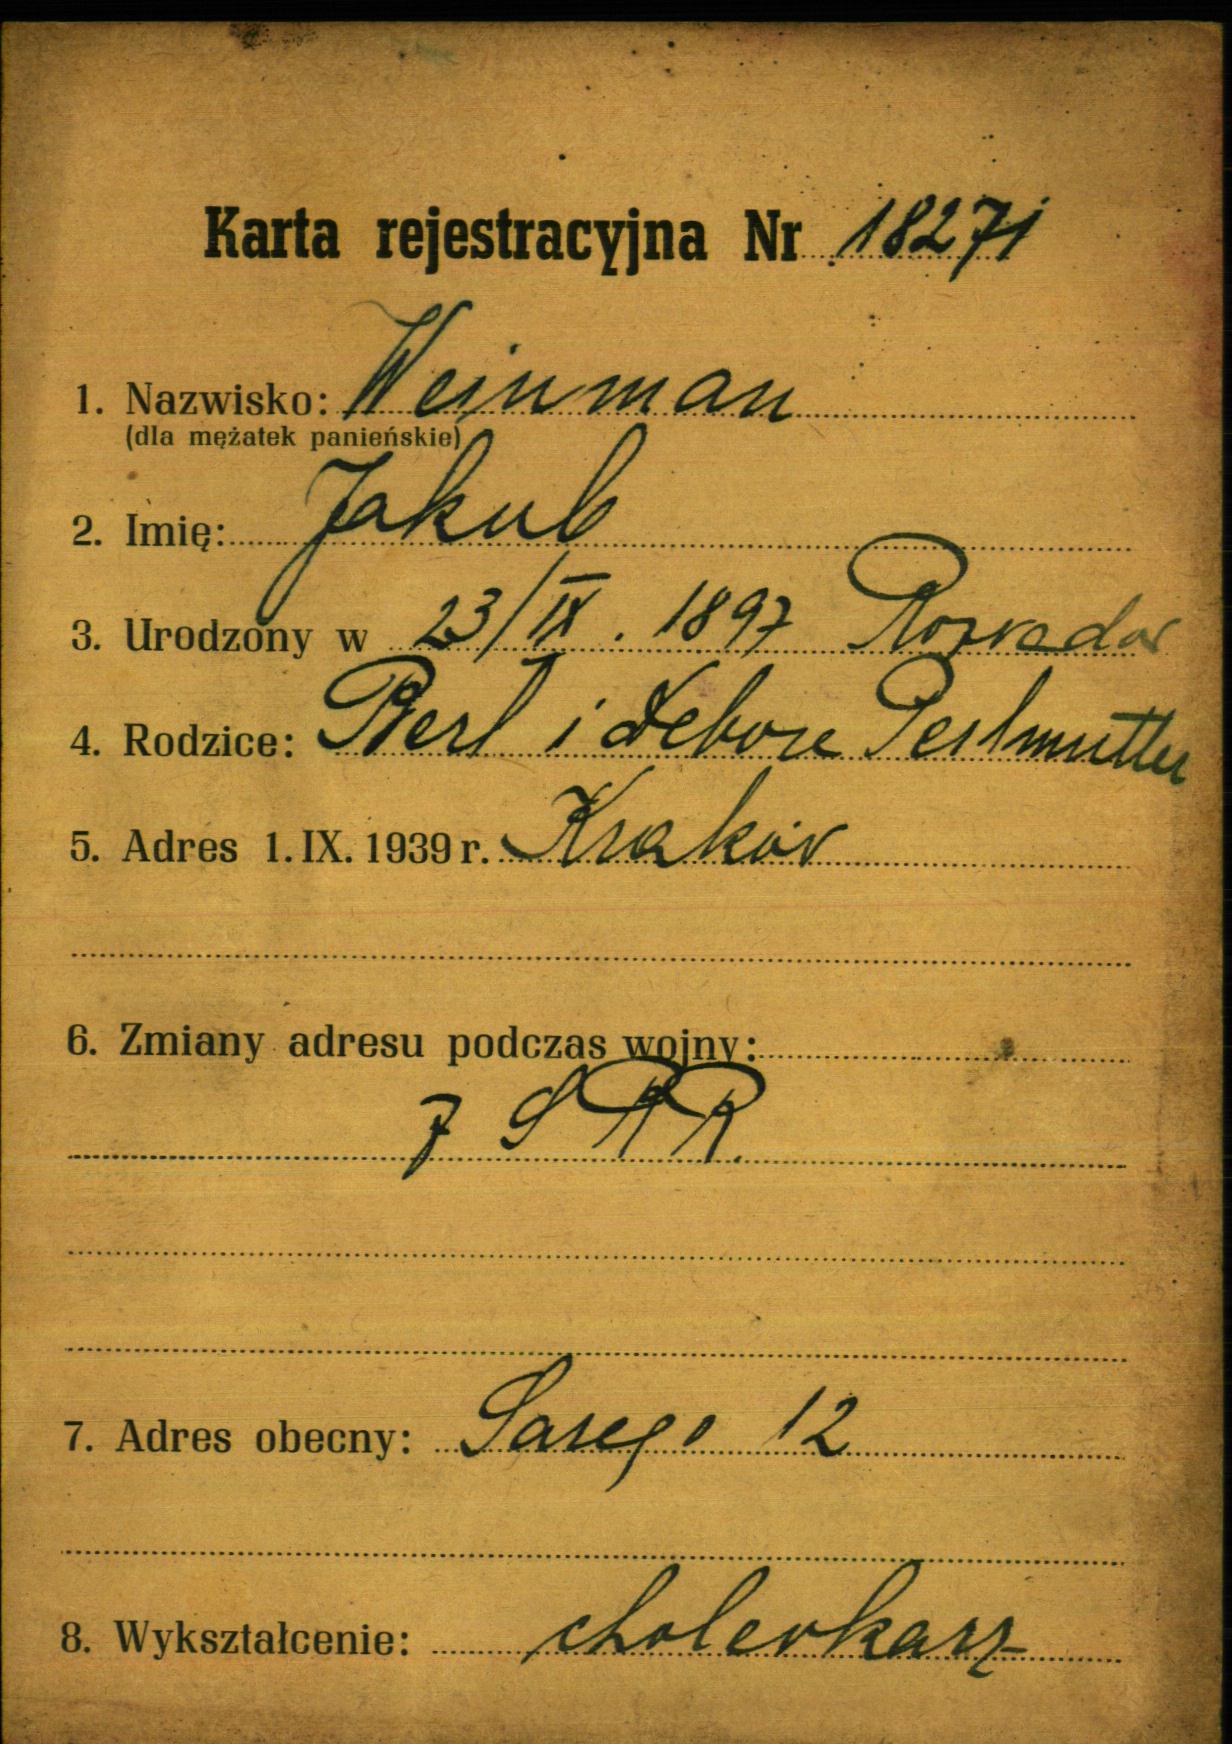 Karta rejestracyjna Nr 18271
1. Nazwisko: Weinman
(dla mężatek panieńskie)
2. Imię: Jakub
3. Urodzony w 23/IX. 1897 Rozwadów
4. Rodzice: Berl i Debora Perlmutter
5. Adres 1. IX. 1939 r. Kraków
6. Zmiany adresu podczas wojny:
Z S R R.
7. Adres obecny: Sarego 12
8. Wykształcenie: cholewkarz